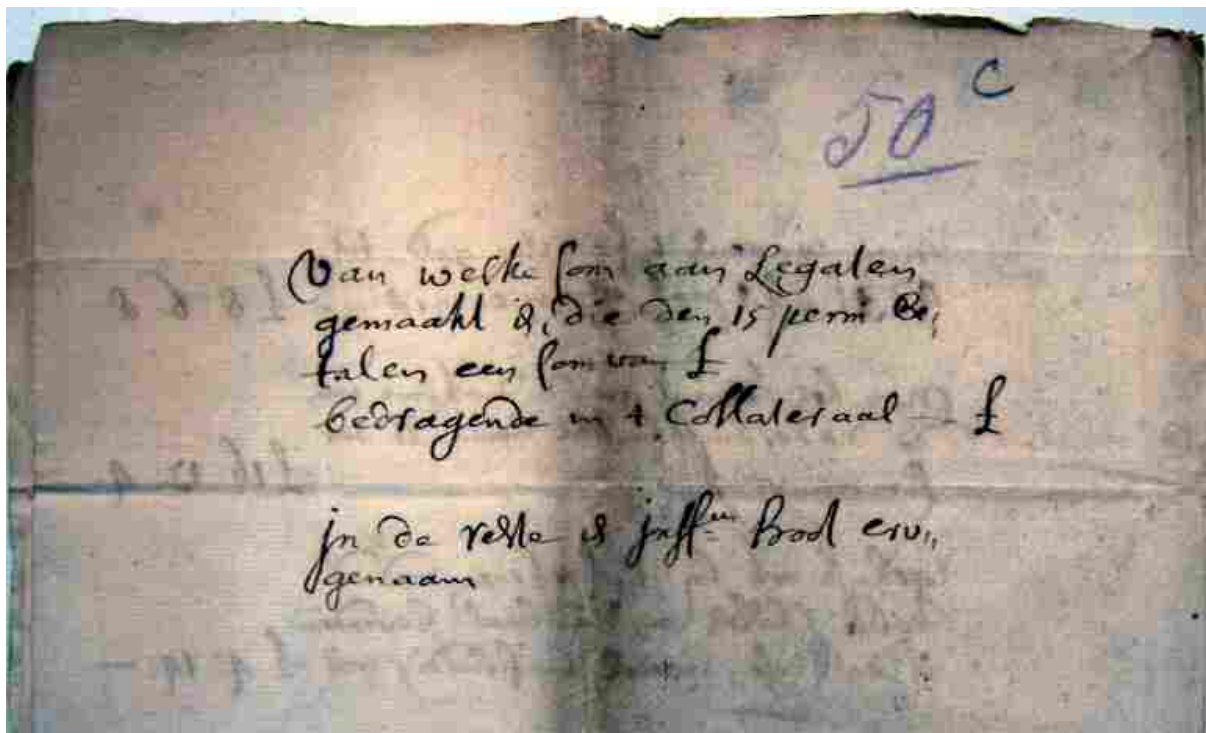 50 C
Van welke som aan Legaten
gemaakt is, die den 15 penn be„
talen een som van £
bedragende in 't Collateraal — £
jn de reste is juff.uw Bool erv„
genaam